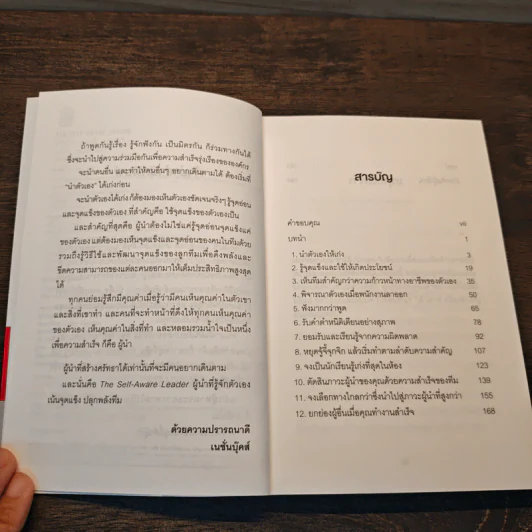 ถ้าพูดกันรู้เรื่อง รู้จักฟังกัน เป็นมิตรกัน ก็ร่วมทางกันได้
ซึ่งจะนำไปสู่ความร่วมมือกันเพื่อความสำเร็จรุ่งเรืองขององค์กร
จะนำคนอื่น และทำให้คนอื่นๆ อยากเดินตามได้ ต้องเริ่มที่
"นำตัวเอง" ได้เก่งก่อน
จะนำตัวเองได้เก่ง ก็ต้องมองเห็นตัวเองชัดเจนจริงๆ รู้จุดอ่อน
และจุดแข็งของตัวเอง ที่สำคัญคือ ใช้จุดแข็งของตัวเองเป็น
และสำคัญที่สุดคือ ผู้นำต้องไม่ใช่แค่รู้จุดอ่อนจุดแข็งแค่
ของตัวเอง แต่ต้องมองเห็นจุดแข็งและจุดอ่อนของคนในทีมด้วย
รวมถึงรู้วิธีใช้และพัฒนาจุดแข็งของลูกทีมเพื่อดึงพลังและ
ขีดความสามารถของแต่ละคนออกมาให้เต็มประสิทธิภาพสูงสุด
ได้
ทุกคนย่อมรู้สึกมีคุณค่าเมื่อรู้ว่ามีคนเห็นคุณค่าในตัวเขา
และสิ่งที่เขาทำ และคนที่จะทำหน้าที่ดึงให้ทุกคนเห็นคุณค่า
ของตัวเอง เห็นคุณค่าในสิ่งที่ทำ และหลอมรวมน้ำใจเป็นหนึ่ง
เพื่อความสำเร็จ ก็คือ ผู้นำ
ผู้นำที่สร้างศรัทธาได้เท่านั้นที่จะมีคนอยากเดินตาม
และนั่นคือ The Self-Aware Leader ผู้นำที่รู้จักตัวเอง
เน้นจุดแข็ง ปลุกพลังทีม
ด้วยความปรารถนาดี
เนชั่นบุ๊คส์
สารบัญ
คำขอบคุณ vii
บทนำ 1
1. นำตัวเองให้เก่ง 3
2. รู้จุดแข็งและใช้ให้เกิดประโยชน์ 19
3. เห็นทีมสำคัญกว่าความก้าวหน้าทางอาชีพของตัวเอง 35
4. พิจารณาตัวเองเมื่อพนักงานลาออก 50
5. ฟังมากกว่าพูด 65
6. รับคำตำหนิติเตียนอย่างสุภาพ 78
7. ยอมรับและเรียนรู้จากความผิดพลาด 92
8. หยุดจู้จี้จุกจิก แล้วเริ่มทำตามลำดับความสำคัญ 107
9. จงเป็นนักเรียนรู้เก่งที่สุดในห้อง 123
10. ตัดสินภาวะผู้นำของคุณด้วยความสำเร็จของทีม 139
11. จงเลือกทางไกลกว่าซึ่งนำไปสู่ภาวะผู้นำที่สูงกว่า 155
12. ยกย่องผู้อื่นเมื่อคุณทำงานสำเร็จ 168